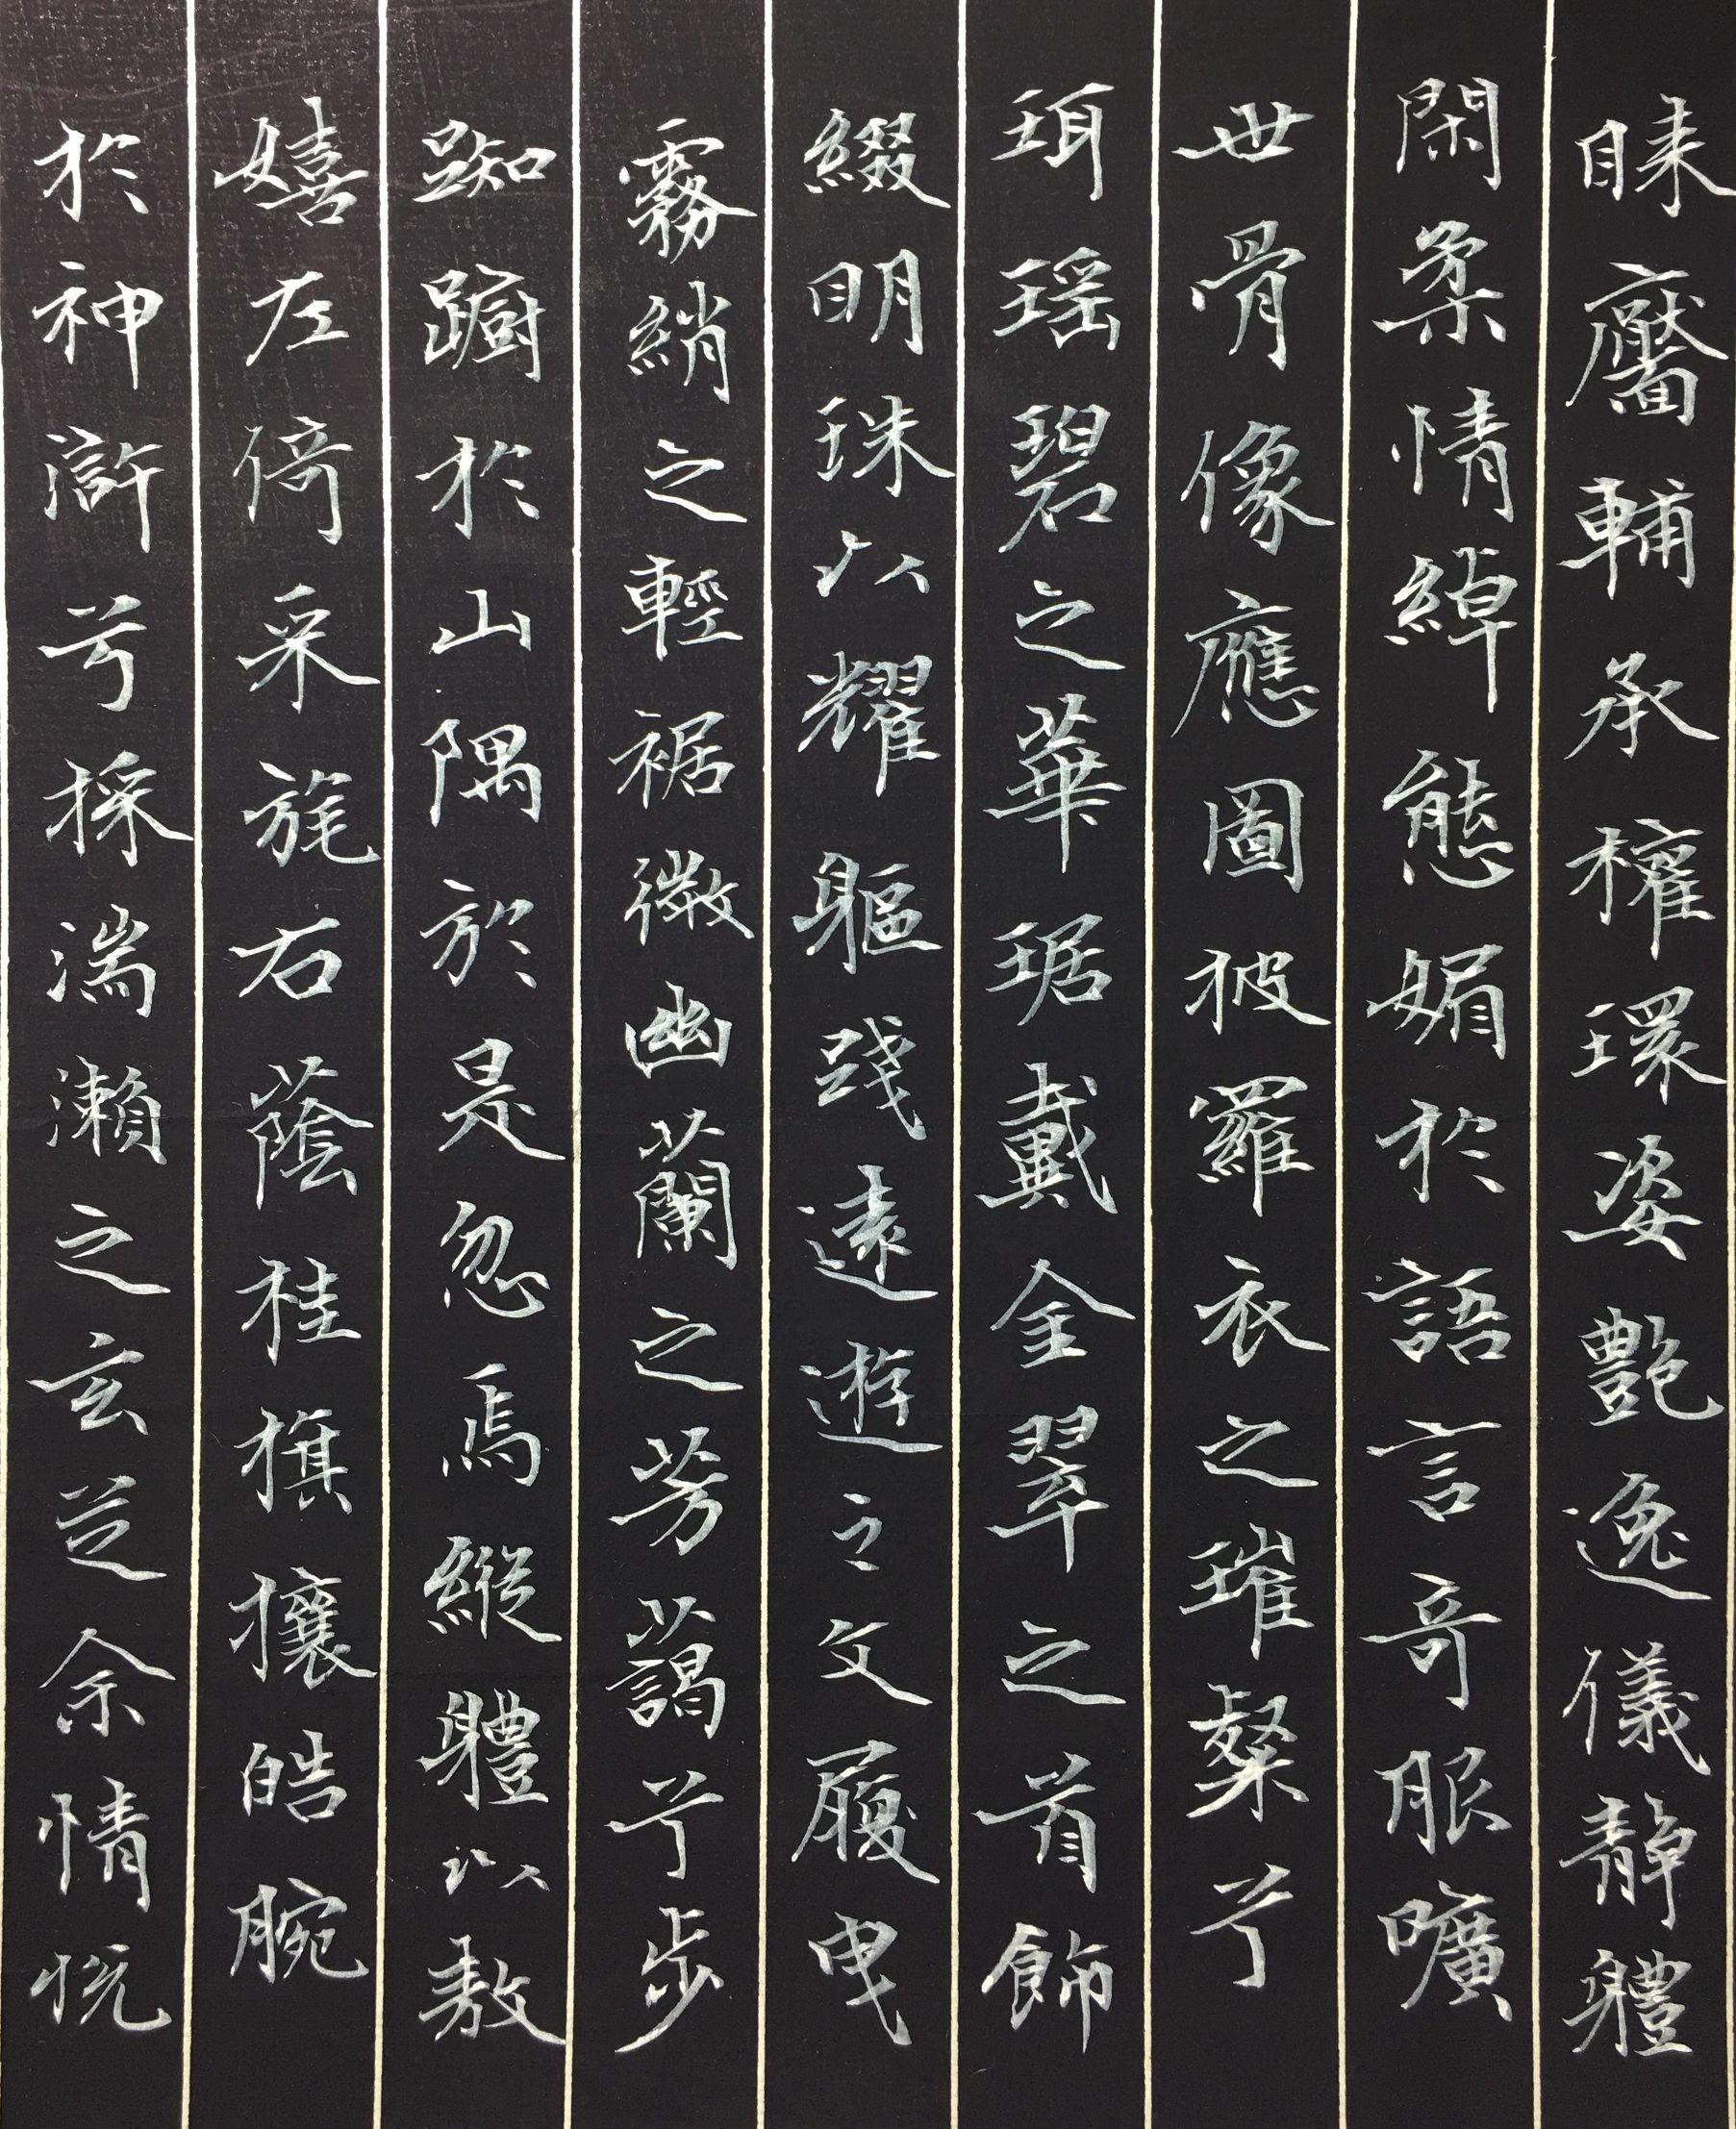 睐靨輔承權環姿艷逸儀靜體
閑柔情綽態媚於語言奇服曠
世骨像應圖披羅衣之璀粲兮
珥瑶碧之華琚戴金翠之首飾
綴明珠以耀軀踐遠遊之文履曳
霧綃之輕裾微幽蘭之芳藹兮步
踟躕於山隅於是忽焉縱體以敖
嬉左倚采旄右蔭桂旗攘皓腕
於神滸兮採湍瀨之玄芝余情悦